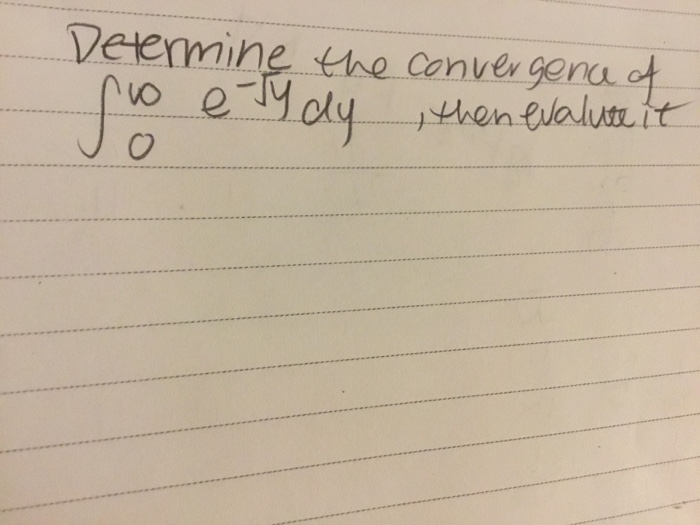 Determine the convergence of
∫₀^∞ e^-√y dy , then evaluate it